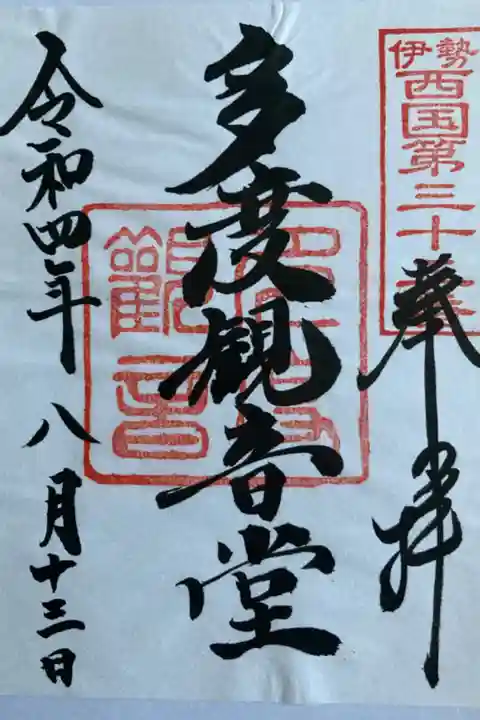 伊勢
西国第三十番
奉拝
多度観音堂
令和四年八月十三日